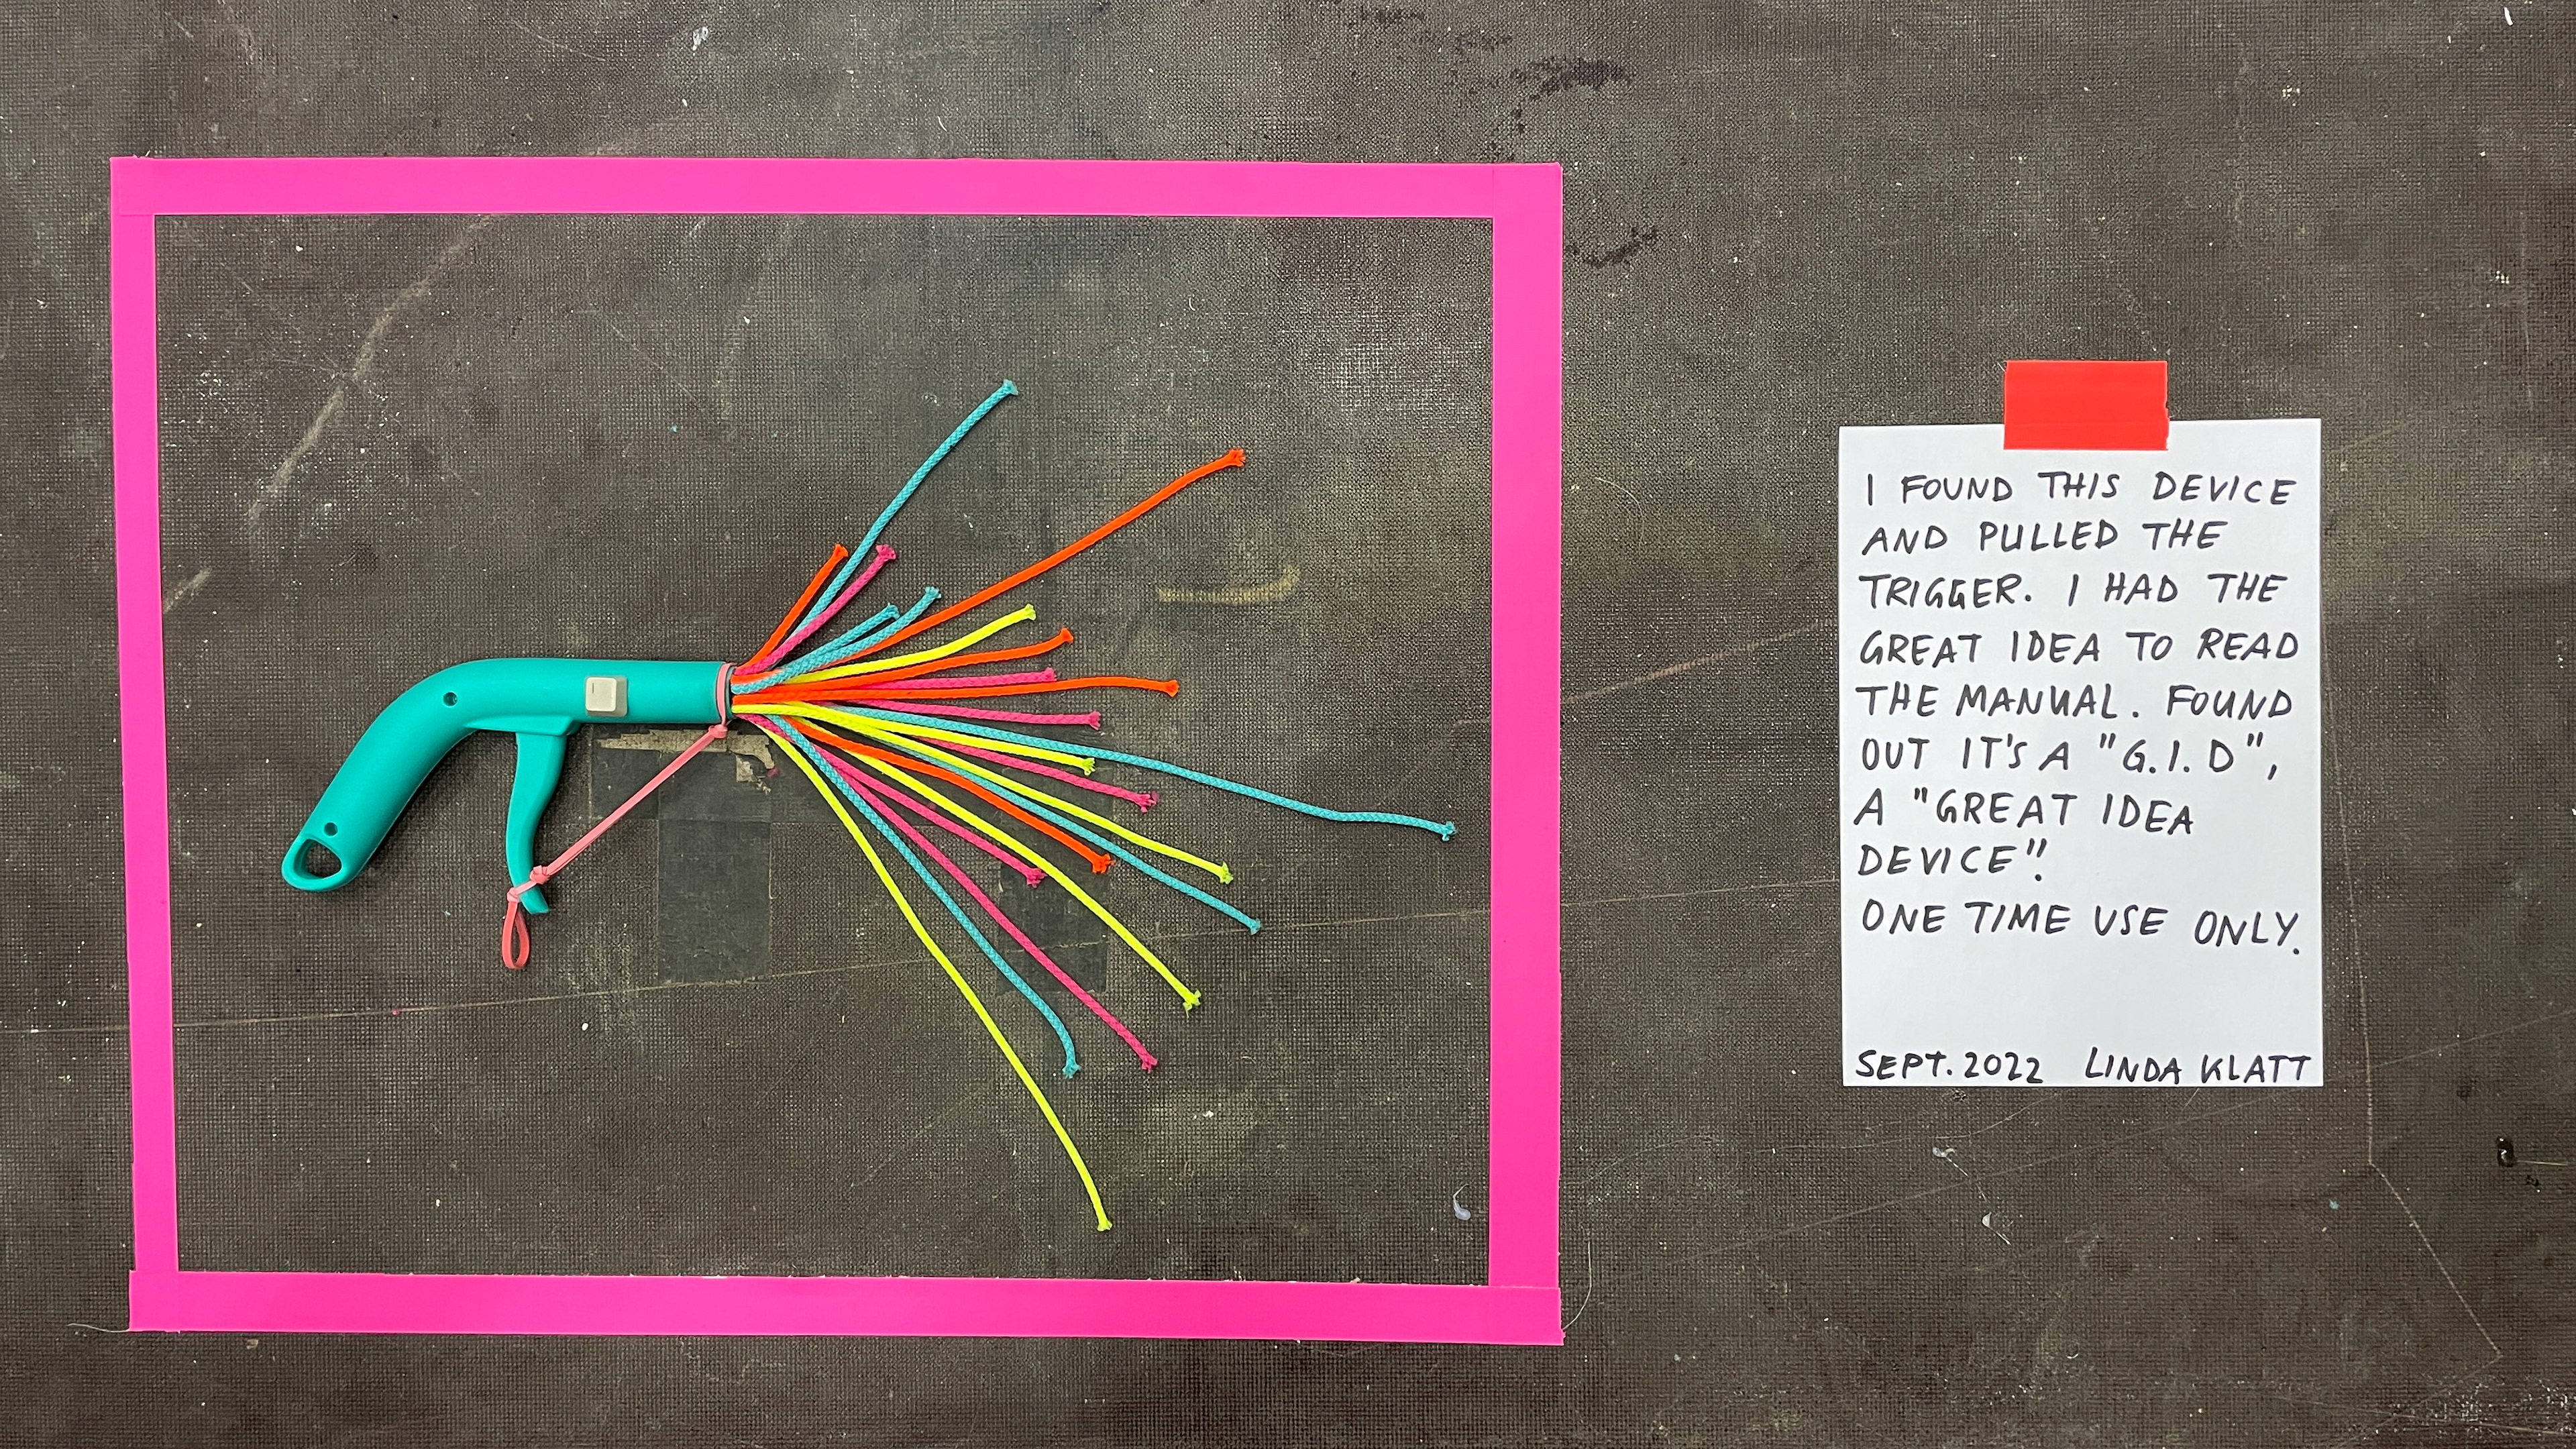 I FOUND THIS DEVICE
AND PULLED THE
TRIGGER. I HAD THE
GREAT IDEA TO READ
THE MANUAL. FOUND
OUT IT'S A "G.I.D",
A "GREAT IDEA
DEVICE"!
ONE TIME USE ONLY.
SEPT. 2022 LINDA KLATT